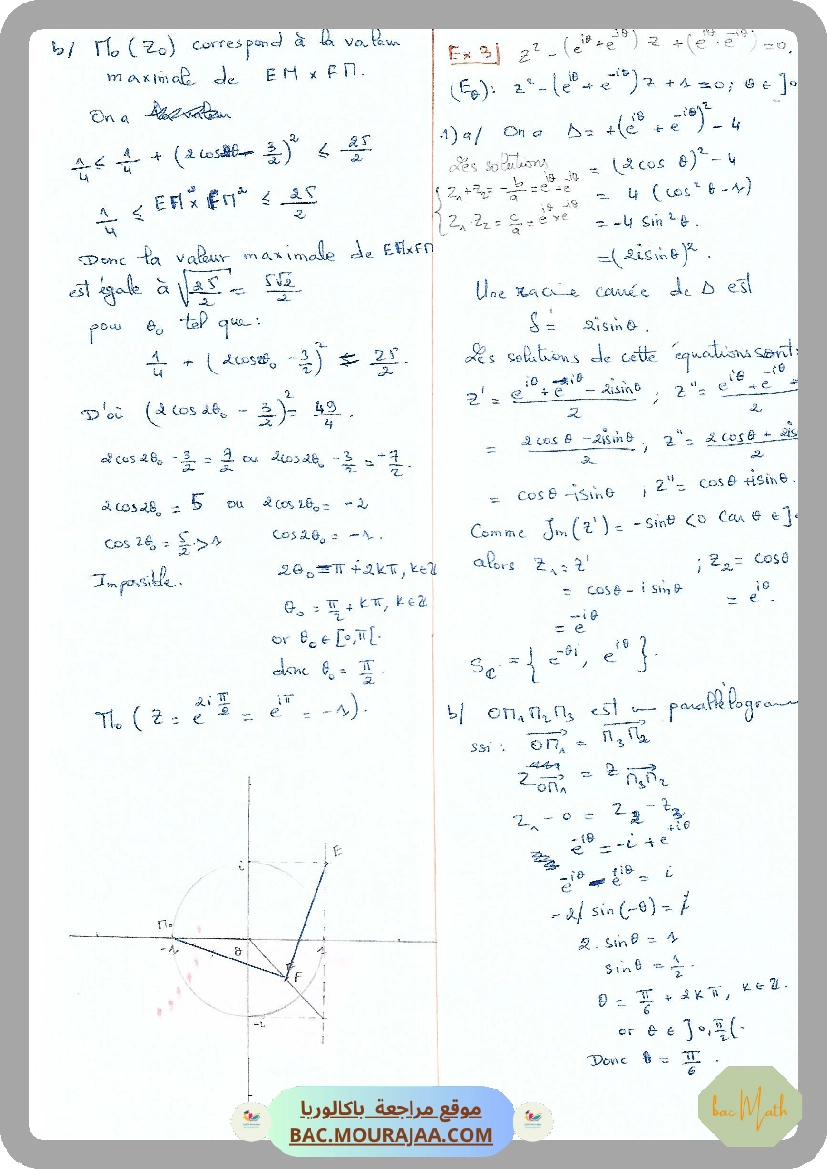 b/ M₀(Z₀) correspond à la valeur
maximale de EM × FM.
On a
1/4 ≤ 1/4 + (2cos2θ - 3/2)² ≤ 25/2
1/4 ≤ EM² × FM² ≤ 25/2
Donc la valeur maximale de EM×FM
est égale à √(25/2) = 5√2/2
pour θ₀ tel que :
1/4 + (2cos2θ₀ - 3/2)² = 25/2.
D'où (2cos2θ₀ - 3/2)² = 49/4.
2cos2θ₀ - 3/2 = 7/2 ou 2cos2θ₀ - 3/2 = -7/2.
2cos2θ₀ = 5 ou 2cos2θ₀ = -2
cos2θ₀ = 5/2 > 1 cos2θ₀ = -1.
Impossible. 2θ₀ = π + 2kπ, k∈Z
θ₀ = π/2 + kπ, k∈Z
or θ₀ ∈ [0,π[.
donc θ₀ = π/2.
M₀(Z = e^(2iπ/2) = e^(iπ) = -1).
i
E
M₀
-1
θ
1
F
Ex 3] z² - (e^(iθ) + e^(-iθ)) z + (e^(iθ) · e^(-iθ)) = 0.
(Eθ): z² - (e^(iθ) + e^(-iθ)) z + 1 = 0 ; θ ∈ ]0
1) a/ On a Δ = +(e^(iθ) + e^(-iθ))² - 4
Les solutions = (2cos θ)² - 4
Z₁+Z₂ = -b/a = e^(iθ) + e^(-iθ) = 4 (cos²θ - 1)
Z₁·Z₂ = c/a = e^(iθ) × e^(-iθ) = -4 sin²θ.
= (2i sinθ)².
Une racine carrée de Δ est
δ = 2i sinθ.
Les solutions de cette équation sont:
Z' = (e^(iθ) + e^(-iθ) - 2i sinθ)/2 ; Z" = (e^(iθ) + e^(-iθ) +)/2
= (2cosθ - 2i sinθ)/2 ; Z" = (2cosθ + 2is)/2
= cosθ - i sinθ ; Z" = cosθ + i sinθ.
Comme Im(Z') = -sinθ < 0 car θ ∈ ]0
alors Z₁ = Z' ; Z₂ = cosθ
= cosθ - i sinθ = e^(iθ).
= e^(-iθ)
S_C = { e^(-θi), e^(iθ) }.
b/ OM₁M₂M₃ est un parallélogram
ssi : OM₁ = M₃M₂
Z OM₁ = Z M₃M₂
Z₁ - 0 = Z₂ - Z₃
e^(-iθ) = -i + e^(+iθ)
e^(-iθ) - e^(iθ) = i
-2i sin(-θ) = i
2·sinθ = 1
sinθ = 1/2.
θ = π/6 + 2kπ, k∈Z.
or θ ∈ ]0, π/2[.
Donc θ = π/6.
موقع مراجعة باكالوريا
BAC.MOURAJAA.COM
bac Math